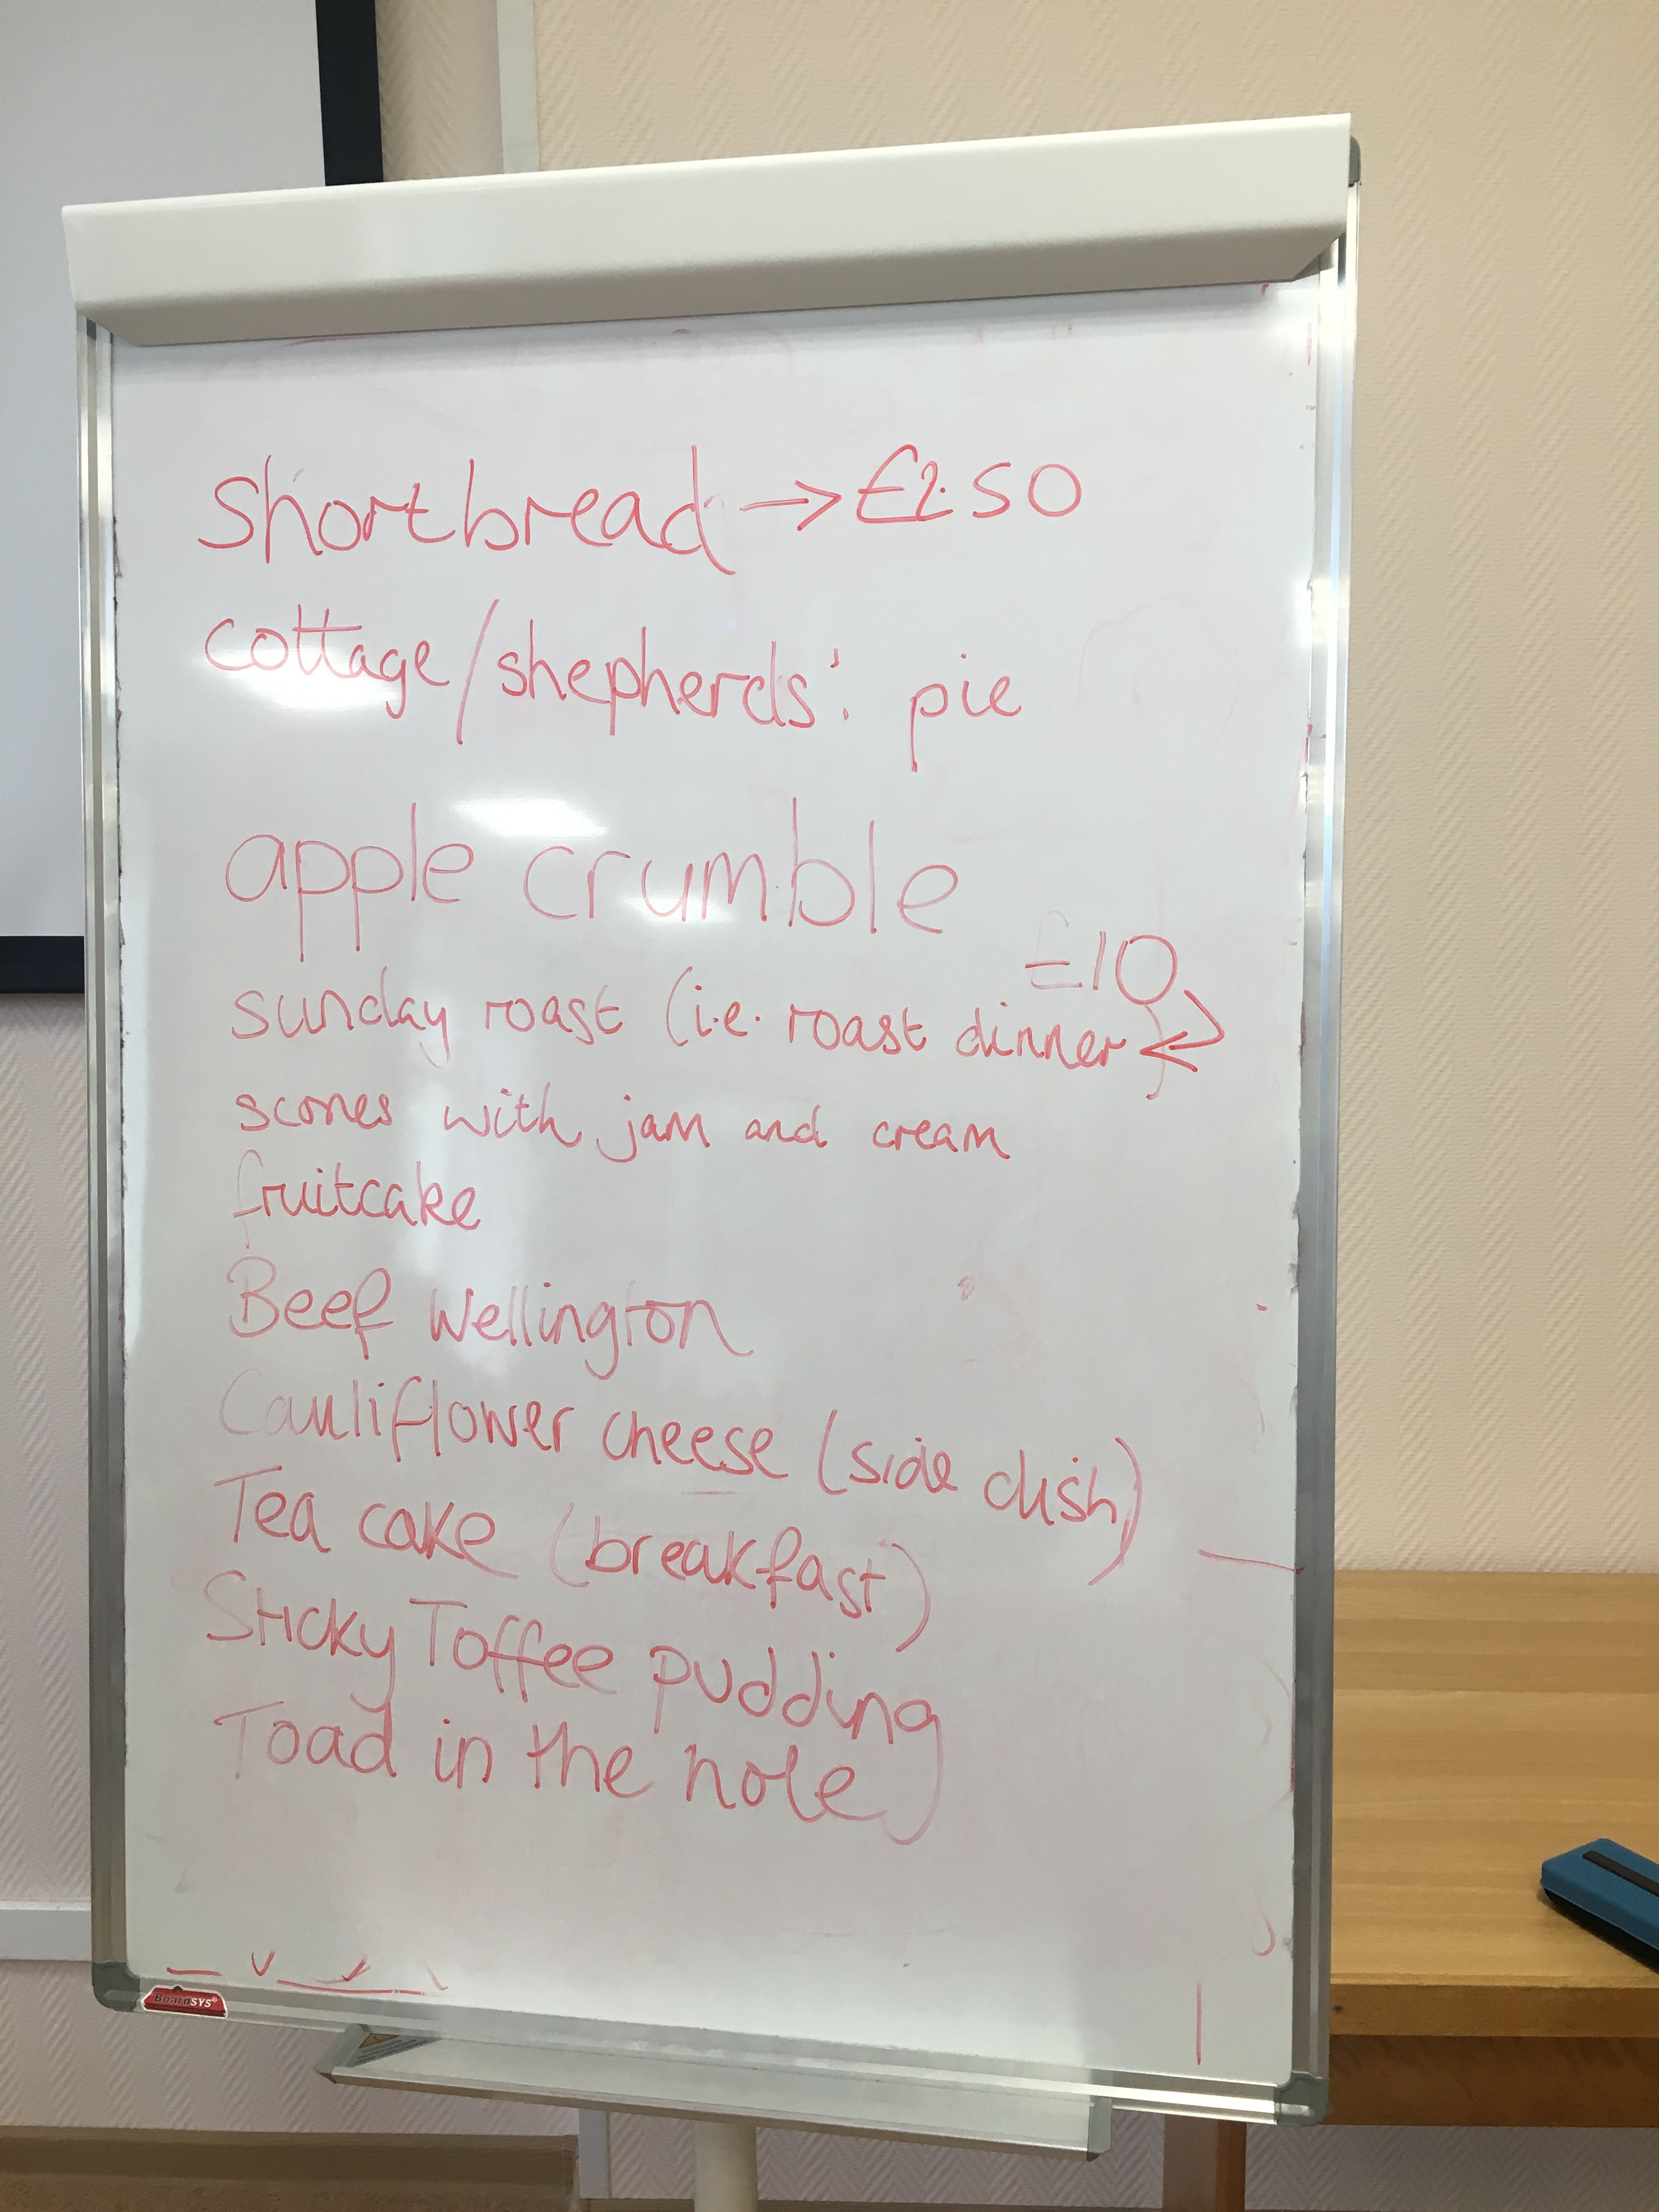 shortbread → £2.50
cottage/shepherds' pie
apple crumble
£10
sunday roast (i.e. roast dinner)
scones with jam and cream
fruitcake
Beef Wellington
Cauliflower cheese (side dish)
Tea cake (breakfast)
Sticky Toffee pudding
Toad in the hole
BoardSYS®